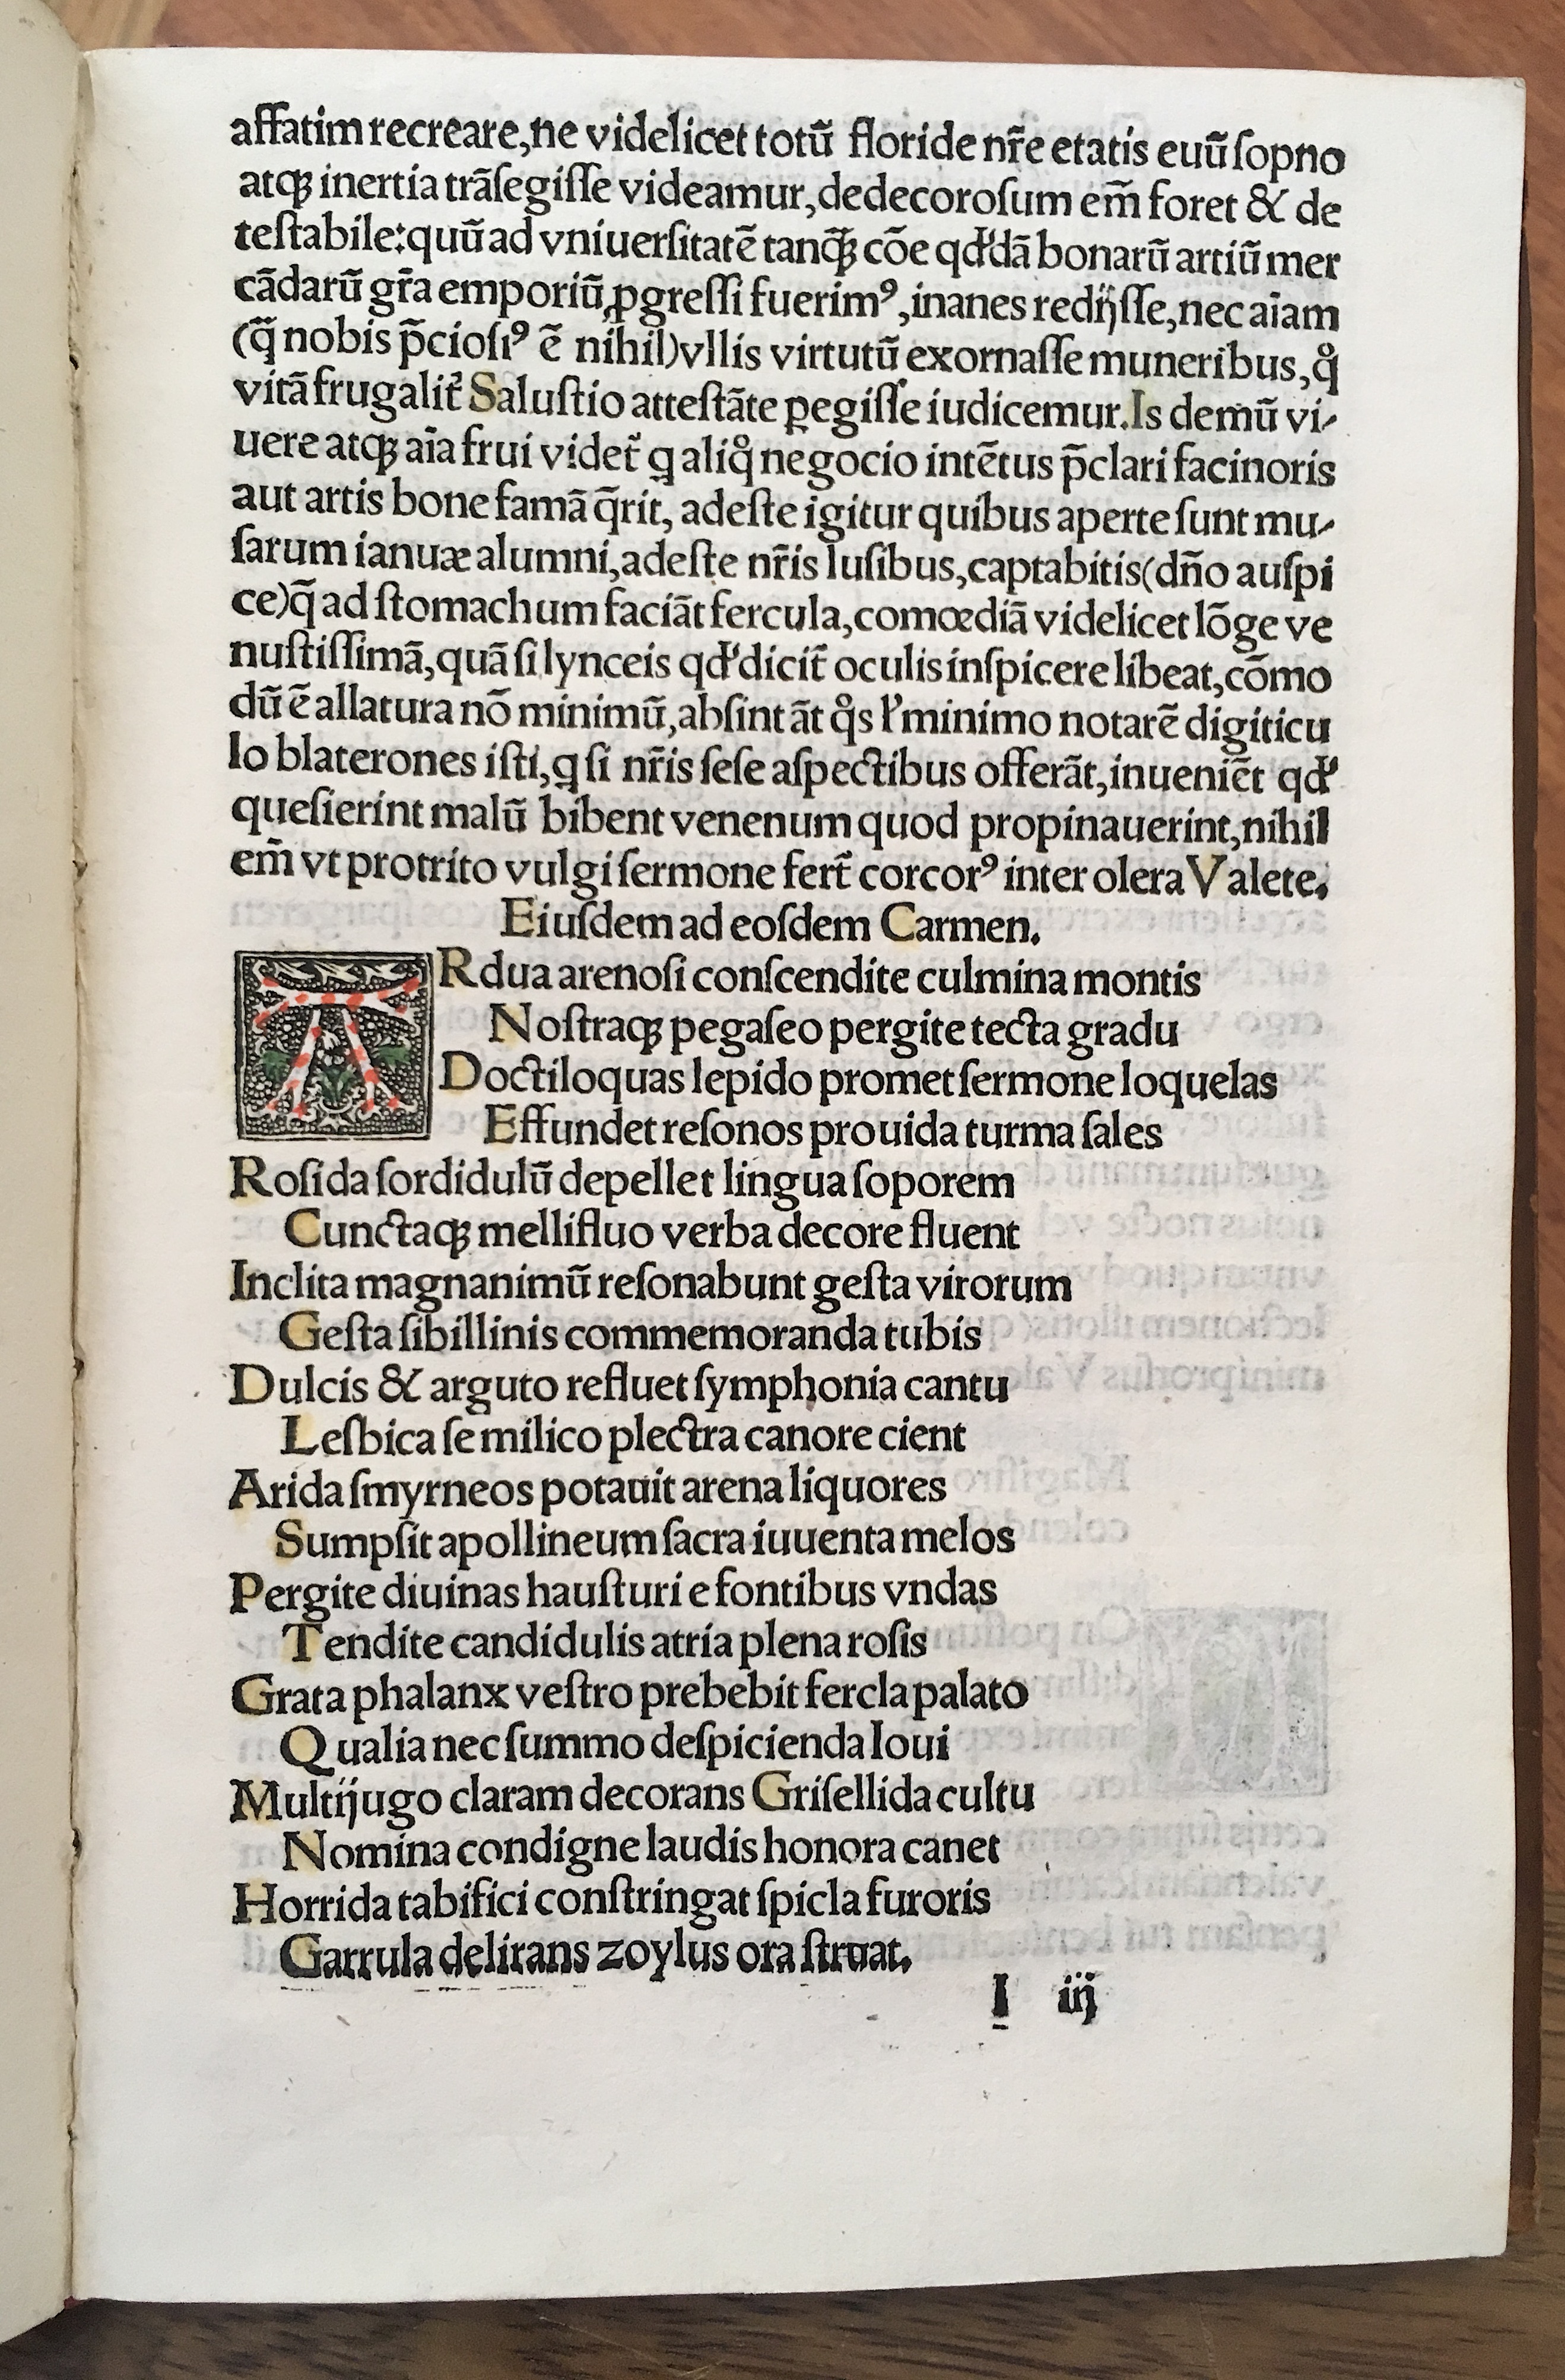 affatim recreare,ne videlicet totū floride nr̃e etatis euū ſopno
atqꝫ inertia trāſegiſſe videamur,dedecoroſum em̃ foret & de
teſtabile:quū ad vniuerſitatē tanq̃ꝫ cōe qd'dā bonarū artiū mer
cādarū gr̃a emporiū ꝓgreſſi fuerimꝰ,inanes redijſſe,nec aīam
(q̃ nobis p̃cioſiꝰ ē nihil)vllis virtutū exornaſſe muneribus,qͦ
vitā frugalit̃ Saluſtio atteſtāte ꝑegiſſe iudicemur.Is demū vi⸗
uere atqꝫ aīa frui videt̃ ꝗ aliqͦ negocio intētus p̃clari facinoris
aut artis bone famā q̃rit, adeſte igitur quibus aperte ſunt mu⸗
ſarum ianuæ alumni,adeſte nr̃is luſibus,captabitis(dño auſpi
ce)q̃ ad ſtomachum faciāt fercula,comœdiā videlicet lōge ve
nuſtiſſimā,quā ſi lynceis qd' dicit̃ oculis inſpicere libeat,cōmo
dū ē allatura nō minimū,abſint āt qͦs l' minimo notarē digiticu
lo blaterones iſti,ꝗ ſi nr̃is ſeſe aſpectibus offerāt,inueniēt qd'
queſierint malū bibent venenum quod propinauerint,nihil
em̃ vt protrito vulgi ſermone fert̃ corcorꝰ inter olera Valete.
Eiuſdem ad eoſdem Carmen.
ARdua arenoſi conſcendite culmina montis
Noſtraqꝫ pegaſeo pergite tecta gradu
Doctiloquas lepido promet ſermone loquelas
Effundet reſonos prouida turma ſales
Roſida ſordidulū depellet lingua ſoporem
Cunctaqꝫ mellifluo verba decore fluent
Inclita magnanimū reſonabunt geſta virorum
Geſta ſibillinis commemoranda tubis
Dulcis & arguto refluet ſymphonia cantu
Leſbica ſe milico plectra canore cient
Arida ſmyrneos potauit arena liquores
Sumpſit apollineum ſacra iuuenta melos
Pergite diuinas hauſturi e fontibus vndas
Tendite candidulis atria plena roſis
Grata phalanx veſtro prebebit fercla palato
Qualia nec ſummo deſpicienda Ioui
Multijugo claram decorans Griſellida cultu
Nomina condigne laudis honora canet
Horrida tabifici conſtringat ſpicla furoris
Garrula delirans zoylus ora ſtruat.
I iij